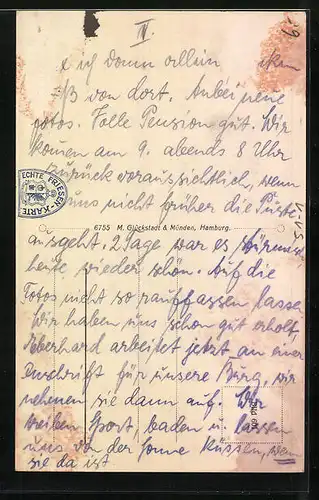 IV.
x ich dann allein
ß von dort. Anbei neue
Fotos. Volle Pension gut. Wir
kommen am 9. abends 8 Uhr
zurück voraussichtlich, wenn
uns nicht früher die Puste
ausgeht. 2 Tage war es stürmisch
heute wieder schön. Auf die
Fotos nicht so rauffassen lassen
Wir haben uns schon gut erholt,
Eberhard arbeitet jetzt an einer
Inschrift für unsere Burg, wir
nehmen sie dann auf. Wir
treiben Sport, baden u. lassen
uns von der Sonne küssen, wenn
sie da ist
ECHTE FRIESEN-KARTE
6755 M. Glückstadt & Münden, Hamburg.